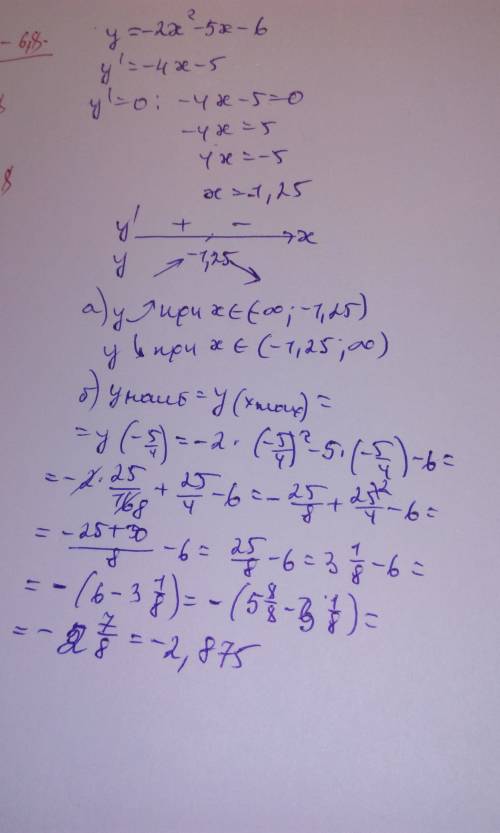 - 6,8-
8
y = -2x² - 5x - 6
y' = -4x - 5
y' = 0 : -4x - 5 = 0
-4x = 5
4x = -5
x = -1,25
y' + - x
y ↗ -1,25 ↘
а) y ↗ при x ∈ (-∞; -1,25)
y ↘ при x ∈ (-1,25; ∞)
б) y наиб = y(xmax) =
= y(-5/4) = -2 · (-5/4)² - 5 · (-5/4) - 6 =
= -2 · 25/16 8 + 25/4 - 6 = -25/8 + 25²/4 - 6 =
= (-25 + 50)/8 - 6 = 25/8 - 6 = 3 1/8 - 6 =
= -(6 - 3 1/8) = -(5 8/8 - 3 1/8) =
= -2 7/8 = -2,875